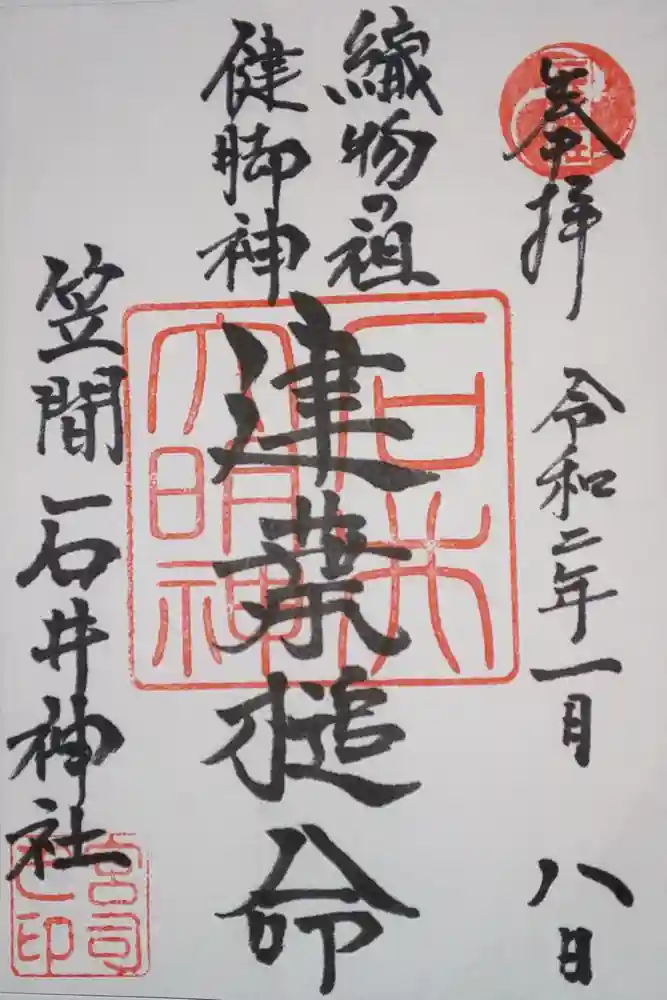 奉拝 令和二年一月八日
織物の祖
健脚神
建葉槌命
笠間 石井神社
石井大明神
宮司之印